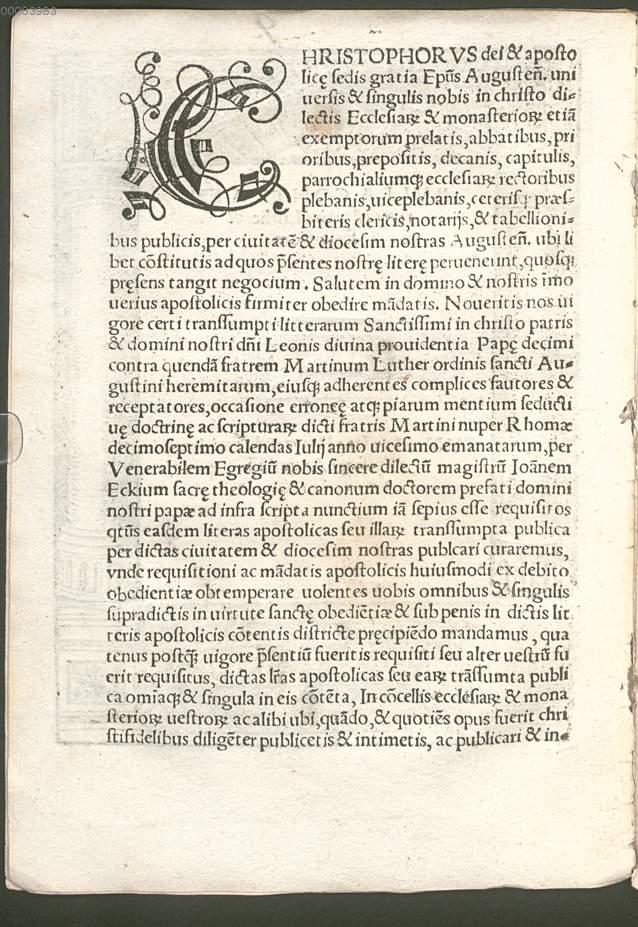 00083983
CHRISTOPHORVS dei & aposto
licę sedis gratia Epūs Augusteñ. uni
uersis & singulis nobis in christo di⸗
lectis Ecclesiaꝝ & monasterioꝝ etiā
exemptorum prelatis, abbatibus, pri
oribus, prepositis, decanis, capitulis,
parrochialiumqꝫ ecclesiaꝝ rectoribus
plebanis, uiceplebanis, ceterisqꝫ præs⸗
biteris clericis, notarijs, & tabellioni⸗
bus publicis, per ciuitatē & diocesim nostras Augusteñ. ubi li
bet cōstitutis ad quos p̄sentes nostrę literę peruenerint, quosqꝫ
pręsens tangit negocium. Salutem in domino & nostris īmo
uerius apostolicis firmiter obedire mādatis. Noueritis nos ui
gore certi transsumpti litterarum Sanctissimi in christo patris
& domini nostri dñi Leonis diuina prouidentia Papę decimi
contra quendā fratrem Martinum Luther ordinis sancti Au⸗
gustini heremitarum, eiusqꝫ adherentes complices fautores &
receptatores, occasione erroneę atqꝫ piarum mentium seducti
uę doctrinę ac scripturaꝝ dicti fratris Martini nuper Rhomæ
decimoseptimo calendas Iulij anno uicesimo emanatarum, per
Venerabilem Egregiū nobis sincere dilectū magistrū Ioānem
Eckium sacrę theologię & canonum doctorem prefati domini
nostri papæ ad infra scripta nunctium iā sepius esse requisitos
qtūs easdem literas apostolicas seu illaꝝ transsumpta publica
per dictas ciuitatem & diocesim nostras publcari curaremus,
vnde requisitioni ac mādatis apostolicis huiusmodi ex debito
obedientiæ obtemperare uolentes uobis omnibus & singulis
supradictis in uirtute sanctę obediētiæ & sub penis in dictis lit
teris apostolicis cōtentis districte pręcipiēdo mandamus, qua
tenus postqꝫ uigore p̄sentiū fueritis requisiti seu alter uestrū fu
erit requisitus, dictas l̄ras apostolicas seu eaꝝ trāssumta publi
ca omiaqꝫ & singula in eis cōtēta, In cōcellis ecclesiaꝝ & mona
sterioꝝ uestroꝝ ac alibi ubi, quādo, & quotiēs opus fuerit chri
stifidelibus diligēter publicetis & intimetis, ac publicari & in⸗